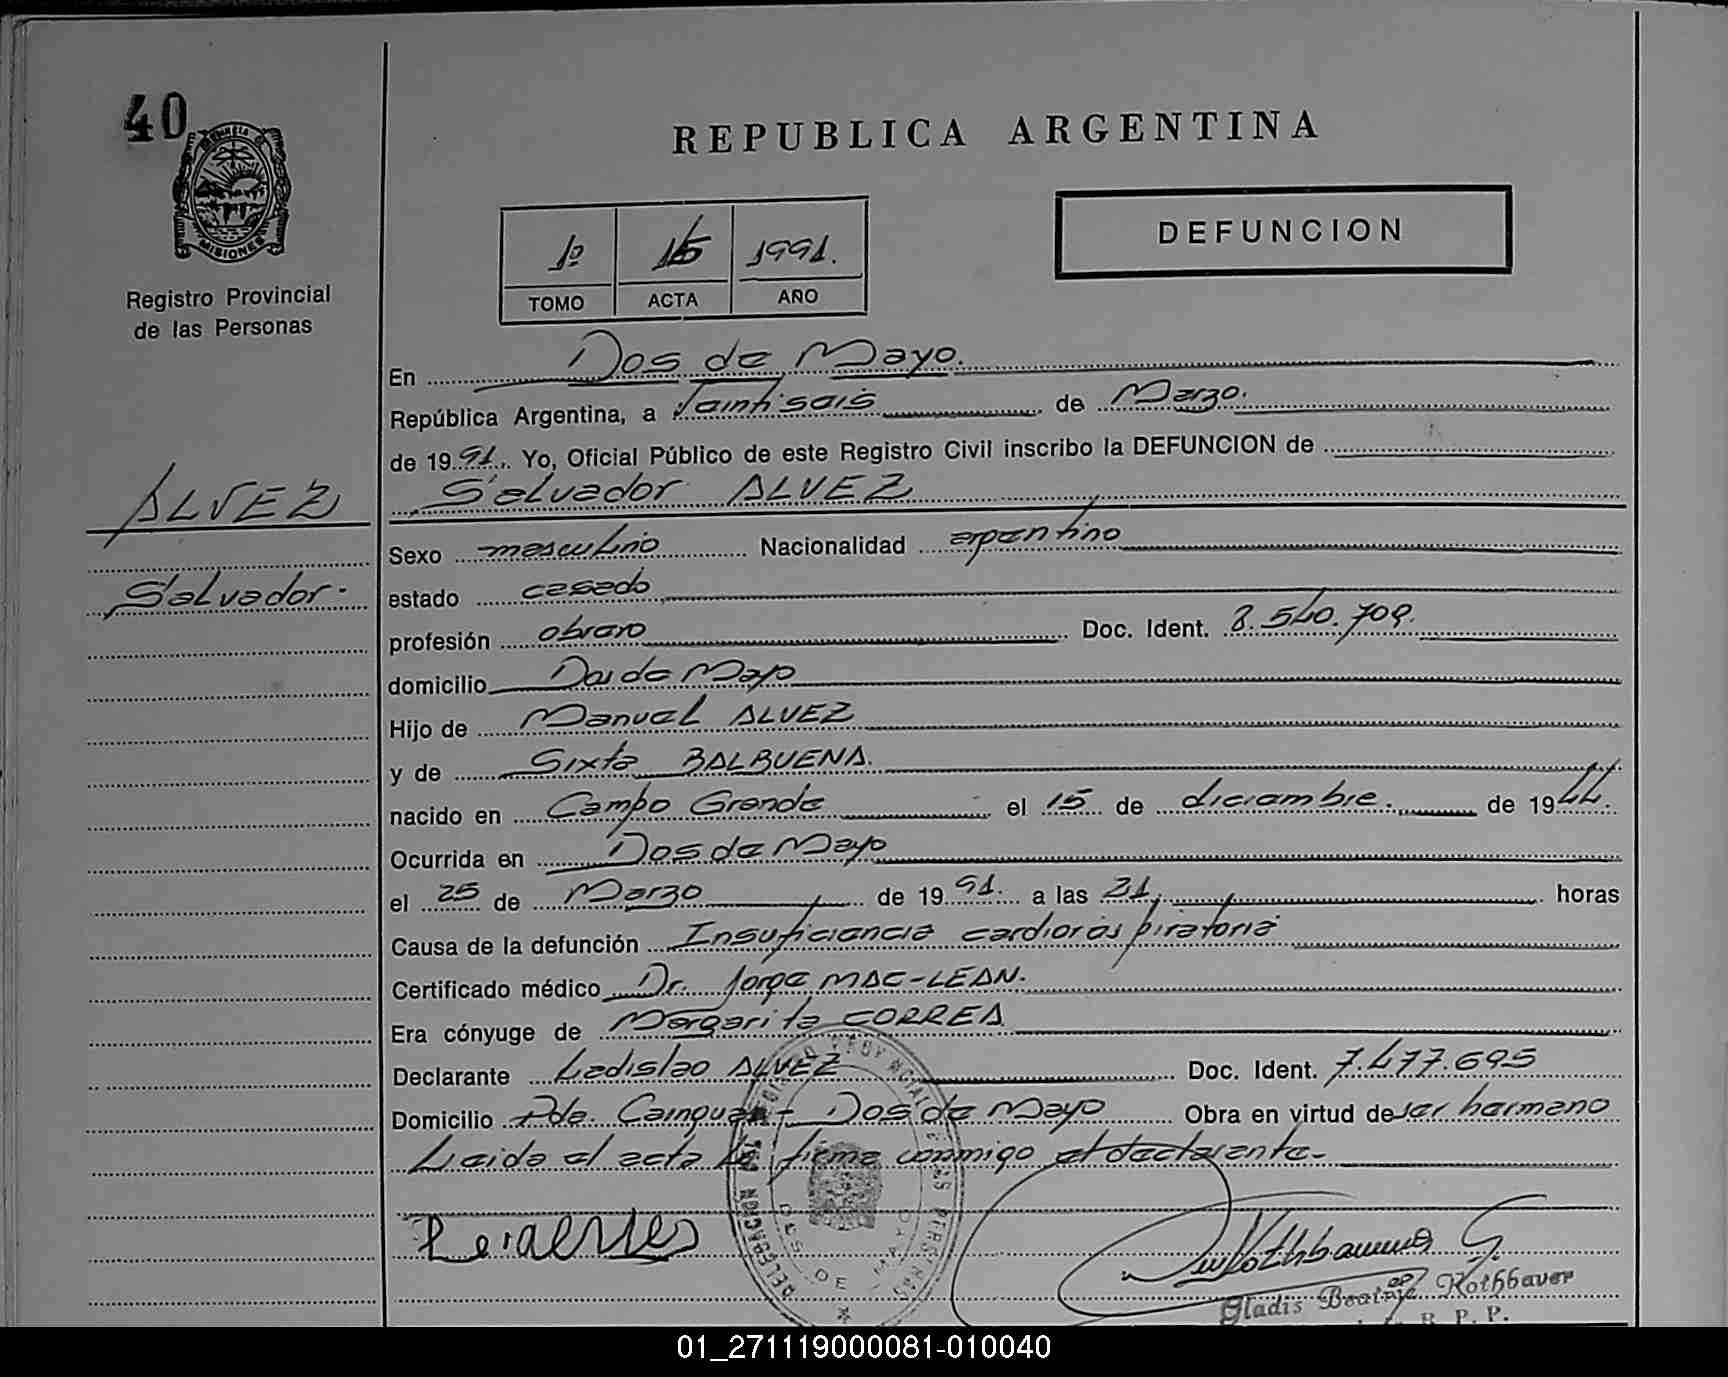 40
MISIONES
Registro Provincial
de las Personas
REPUBLICA ARGENTINA
1º 15 1991.
TOMO ACTA AÑO
DEFUNCION
En Dos de Mayo.
República Argentina, a Veintiseis de Marzo.
de 1991. Yo, Oficial Público de este Registro Civil inscribo la DEFUNCION de
Salvador ALVEZ
ALVEZ
Salvador.
Sexo masculino Nacionalidad argentino
estado casado
profesión obrero Doc. Ident. 8.540.709.
domicilio Dos de Mayo
Hijo de Manuel ALVEZ
y de Sixta BALBUENA.
nacido en Campo Grande el 15 de diciembre. de 1944.
Ocurrida en Dos de Mayo
el 25 de Marzo de 1991. a las 21, horas
Causa de la defunción Insuficiencia cardiorespiratoria
Certificado médico Dr. Jorge MAC-LEAN.
Era cónyuge de Margarita CORREA
Declarante Ladislao ALVEZ Doc. Ident. 7.477.695
Domicilio Pde. Cainguas - Dos de Mayo Obra en virtud de ser hermano
Leida el acta la firma conmigo el declarante-
DELEGACION
DOS DE MAYO
Gladis Beatriz Rothbauer
R. P. P.
01_271119000081-010040